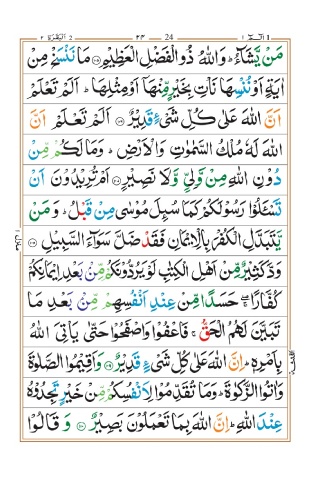 1 الٓـمّٓ ١
24
٢ الْبَقَرَة 2
مَنْ يَّشَآءُ ؕ وَاللّٰهُ ذُو الْفَضْلِ الْعَظِيْمِ ﴿۱۰۵﴾ مَا نَنْسَخْ مِنْ
اٰيَةٍ اَوْ نُنْسِهَا نَاْتِ بِخَيْرٍ مِّنْهَاۤ اَوْ مِثْلِهَا ؕ اَلَمْ تَعْلَمْ
اَنَّ اللّٰهَ عَلٰى كُلِّ شَىْءٍ قَدِيْرٌ ﴿۱۰۶﴾ اَلَمْ تَعْلَمْ اَنَّ
اللّٰهَ لَهٗ مُلْكُ السَّمٰوٰتِ وَالْاَرْضِ ؕ وَمَا لَكُمْ مِّنْ
دُوْنِ اللّٰهِ مِنْ وَّلِيٍّ وَّلَا نَصِيْرٍ ﴿۱۰۷﴾ اَمْ تُرِيْدُوْنَ اَنْ
تَسْـَٔلُوْا رَسُوْلَكُمْ كَمَا سُئِلَ مُوْسٰى مِنْ قَبْلُ ؕ وَمَنْ
يَّتَبَدَّلِ الْكُفْرَ بِالْاِيْمَانِ فَقَدْ ضَلَّ سَوَآءَ السَّبِيْلِ ﴿۱۰۸﴾
وَدَّ كَثِيْرٌ مِّنْ اَهْلِ الْكِتٰبِ لَوْ يَرُدُّوْنَكُمْ مِّنْۢ بَعْدِ اِيْمَانِكُمْ
كُفَّارًا ۖۚ حَسَدًا مِّنْ عِنْدِ اَنْفُسِهِمْ مِّنْۢ بَعْدِ مَا
تَبَيَّنَ لَهُمُ الْحَقُّ ۚ فَاعْفُوْا وَاصْفَحُوْا حَتّٰى يَاْتِىَ اللّٰهُ
بِاَمْرِهٖ ؕ اِنَّ اللّٰهَ عَلٰى كُلِّ شَىْءٍ قَدِيْرٌ ﴿۱۰۹﴾ وَاَقِيْمُوا الصَّلٰوةَ
وَاٰتُوا الزَّكٰوةَ ؕ وَمَا تُقَدِّمُوْا لِاَنْفُسِكُمْ مِّنْ خَيْرٍ تَجِدُوْهُ
عِنْدَ اللّٰهِ ؕ اِنَّ اللّٰهَ بِمَا تَعْمَلُوْنَ بَصِيْرٌ ﴿۱۱۰﴾ وَقَالُوْا